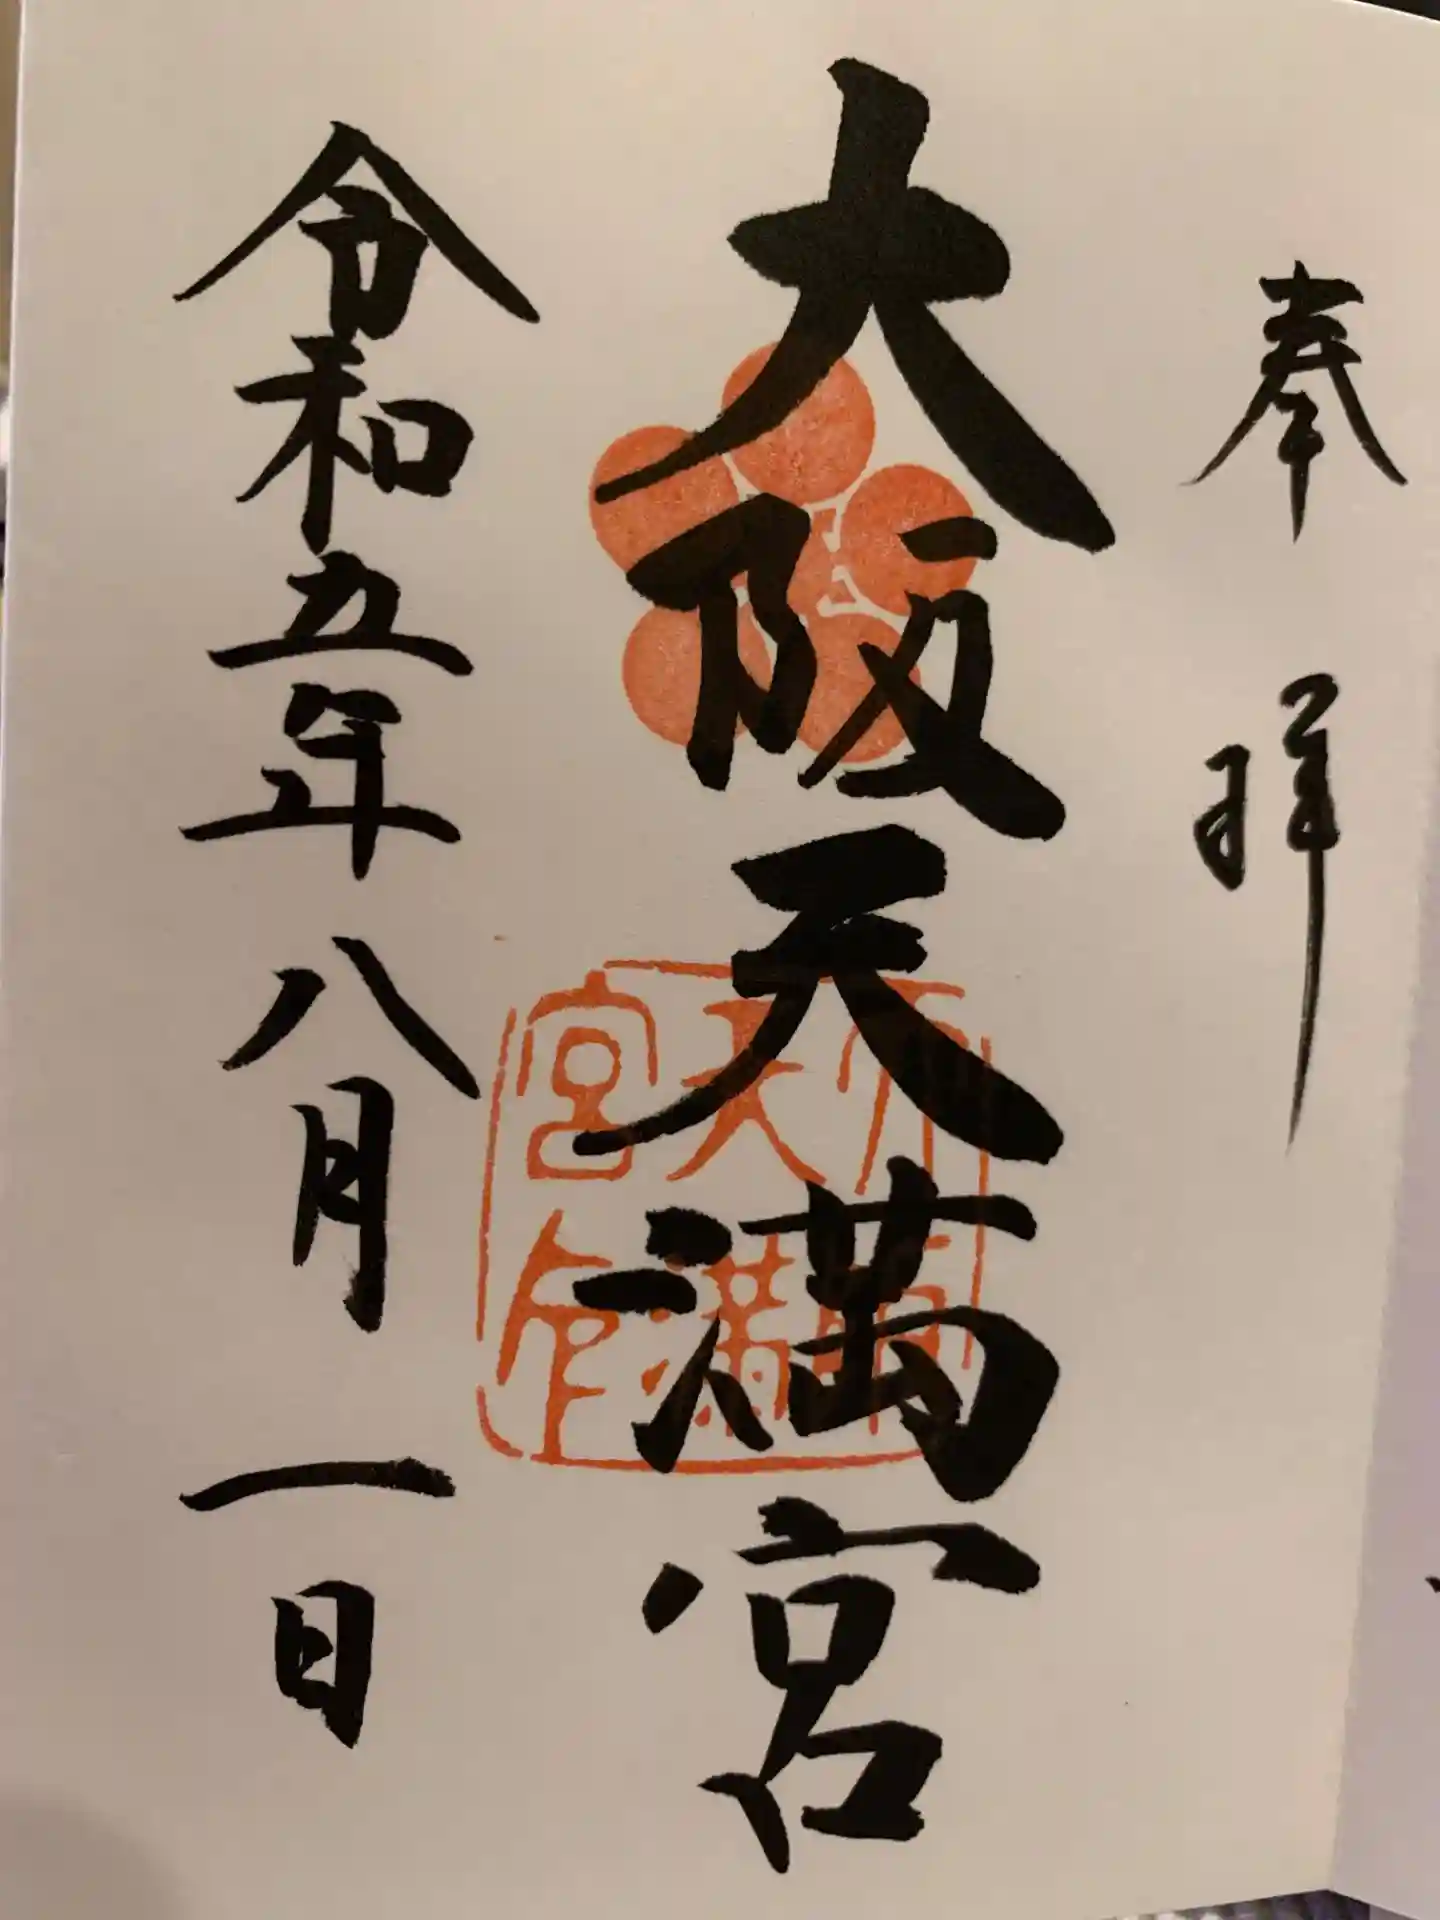 奉拝
大阪天満宮
令和五年八月一日
大阪天満宮印